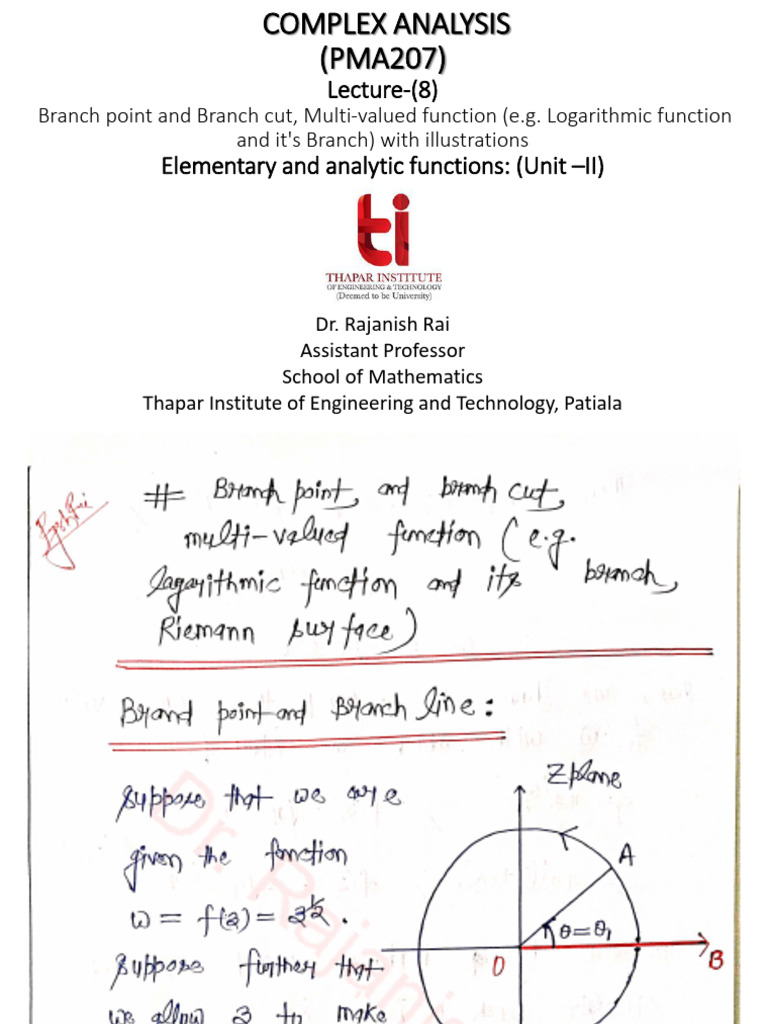 COMPLEX ANALYSIS
(PMA207)
Lecture-(8)
Branch point and Branch cut, Multi-valued function (e.g. Logarithmic function
and it's Branch) with illustrations
Elementary and analytic functions: (Unit –II)
ti
THAPAR INSTITUTE
OF ENGINEERING & TECHNOLOGY
(Deemed to be University)
Dr. Rajanish Rai
Assistant Professor
School of Mathematics
Thapar Institute of Engineering and Technology, Patiala
# Branch point, and branch cut,
multi-valued function (e.g.
logarithmic function and its branch,
Riemann surface)
Brand point and Branch line:
Suppose that we are
given the function
w = f(z) = z^1/2.
Suppose further that
we allow z to make
Z plane
A
θ=θ1
O
B
Dr. Rajanis